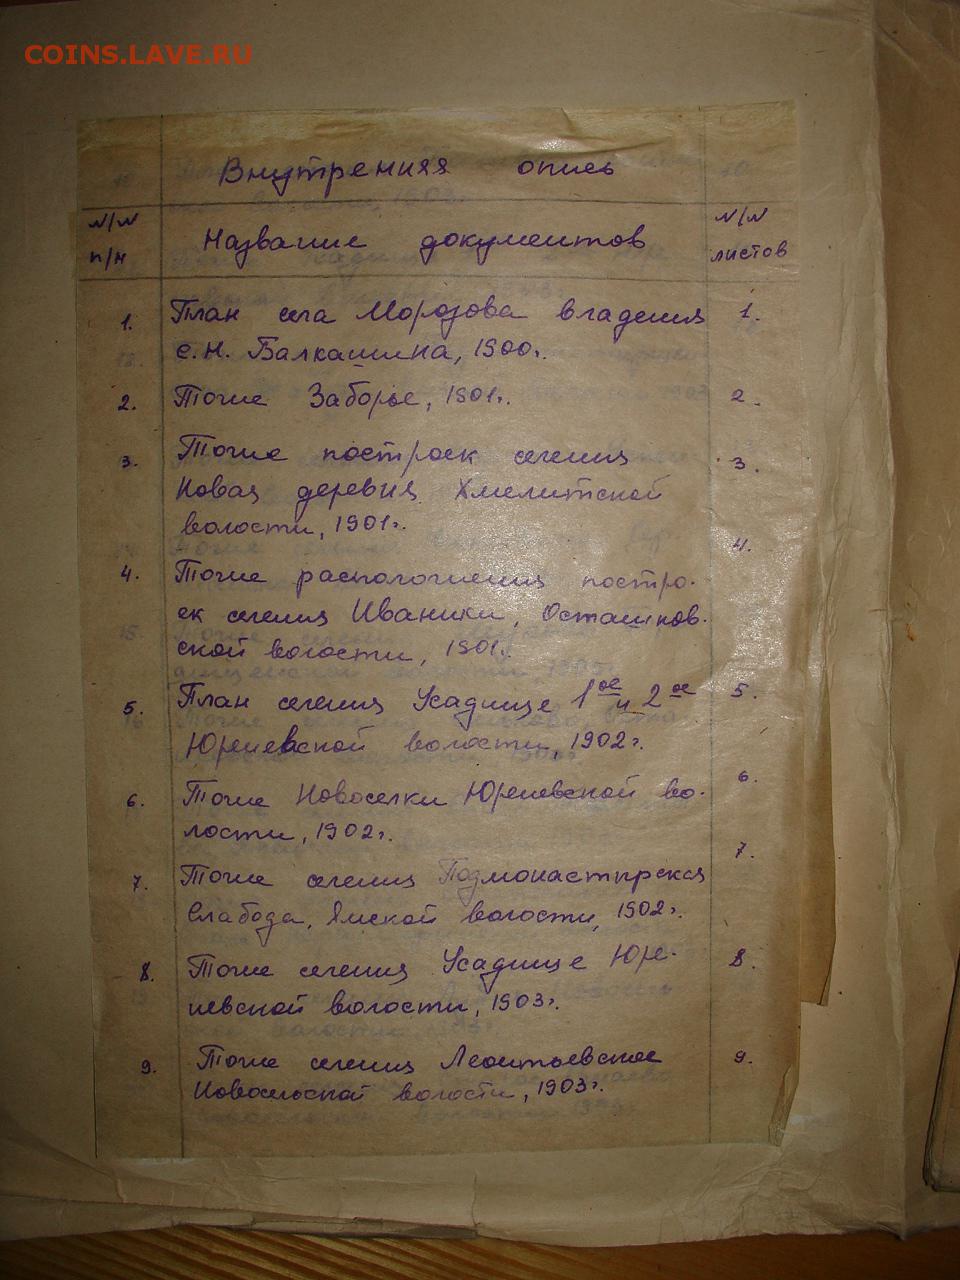 COINS.LAVE.RU
Внутренняя опись
N/N п/н
Название документов
N/N листов
1. План села Морозова владения 1.
с.н. Балкашина, 1900г.
2. Тоже Заборье, 1901г. 2.
3. Тоже построек селения 3.
Новая деревня Хмелитской
волости, 1901г.
4. Тоже расположения постро- 4.
ек селения Иваники, Осташков-
ской волости, 1901г.
5. План селения Усадище 1ое и 2ое 5.
Юреневской волости, 1902г.
6. Тоже Новоселки Юреневской во- 6.
лости, 1902г.
7. Тоже селения Подмонастырская 7.
Слабода, Ямской волости, 1902г.
8. Тоже селения Усадище Юре- 8.
невской волости, 1903г.
9. Тоже селения Леонтьевское 9.
Новосельской волости, 1903г.